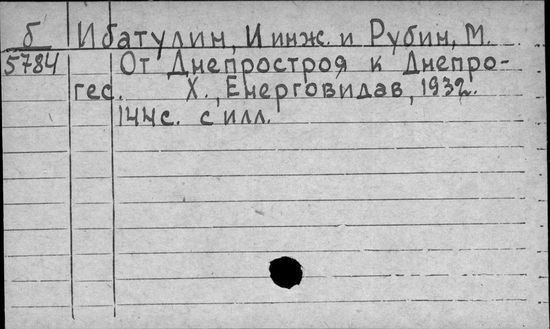 б Ибатулин, И инж. и Рубин, М.
5784 От Днепростроя к Днепро-
гес. Х., Енерговидав, 1932.
144с. с илл.